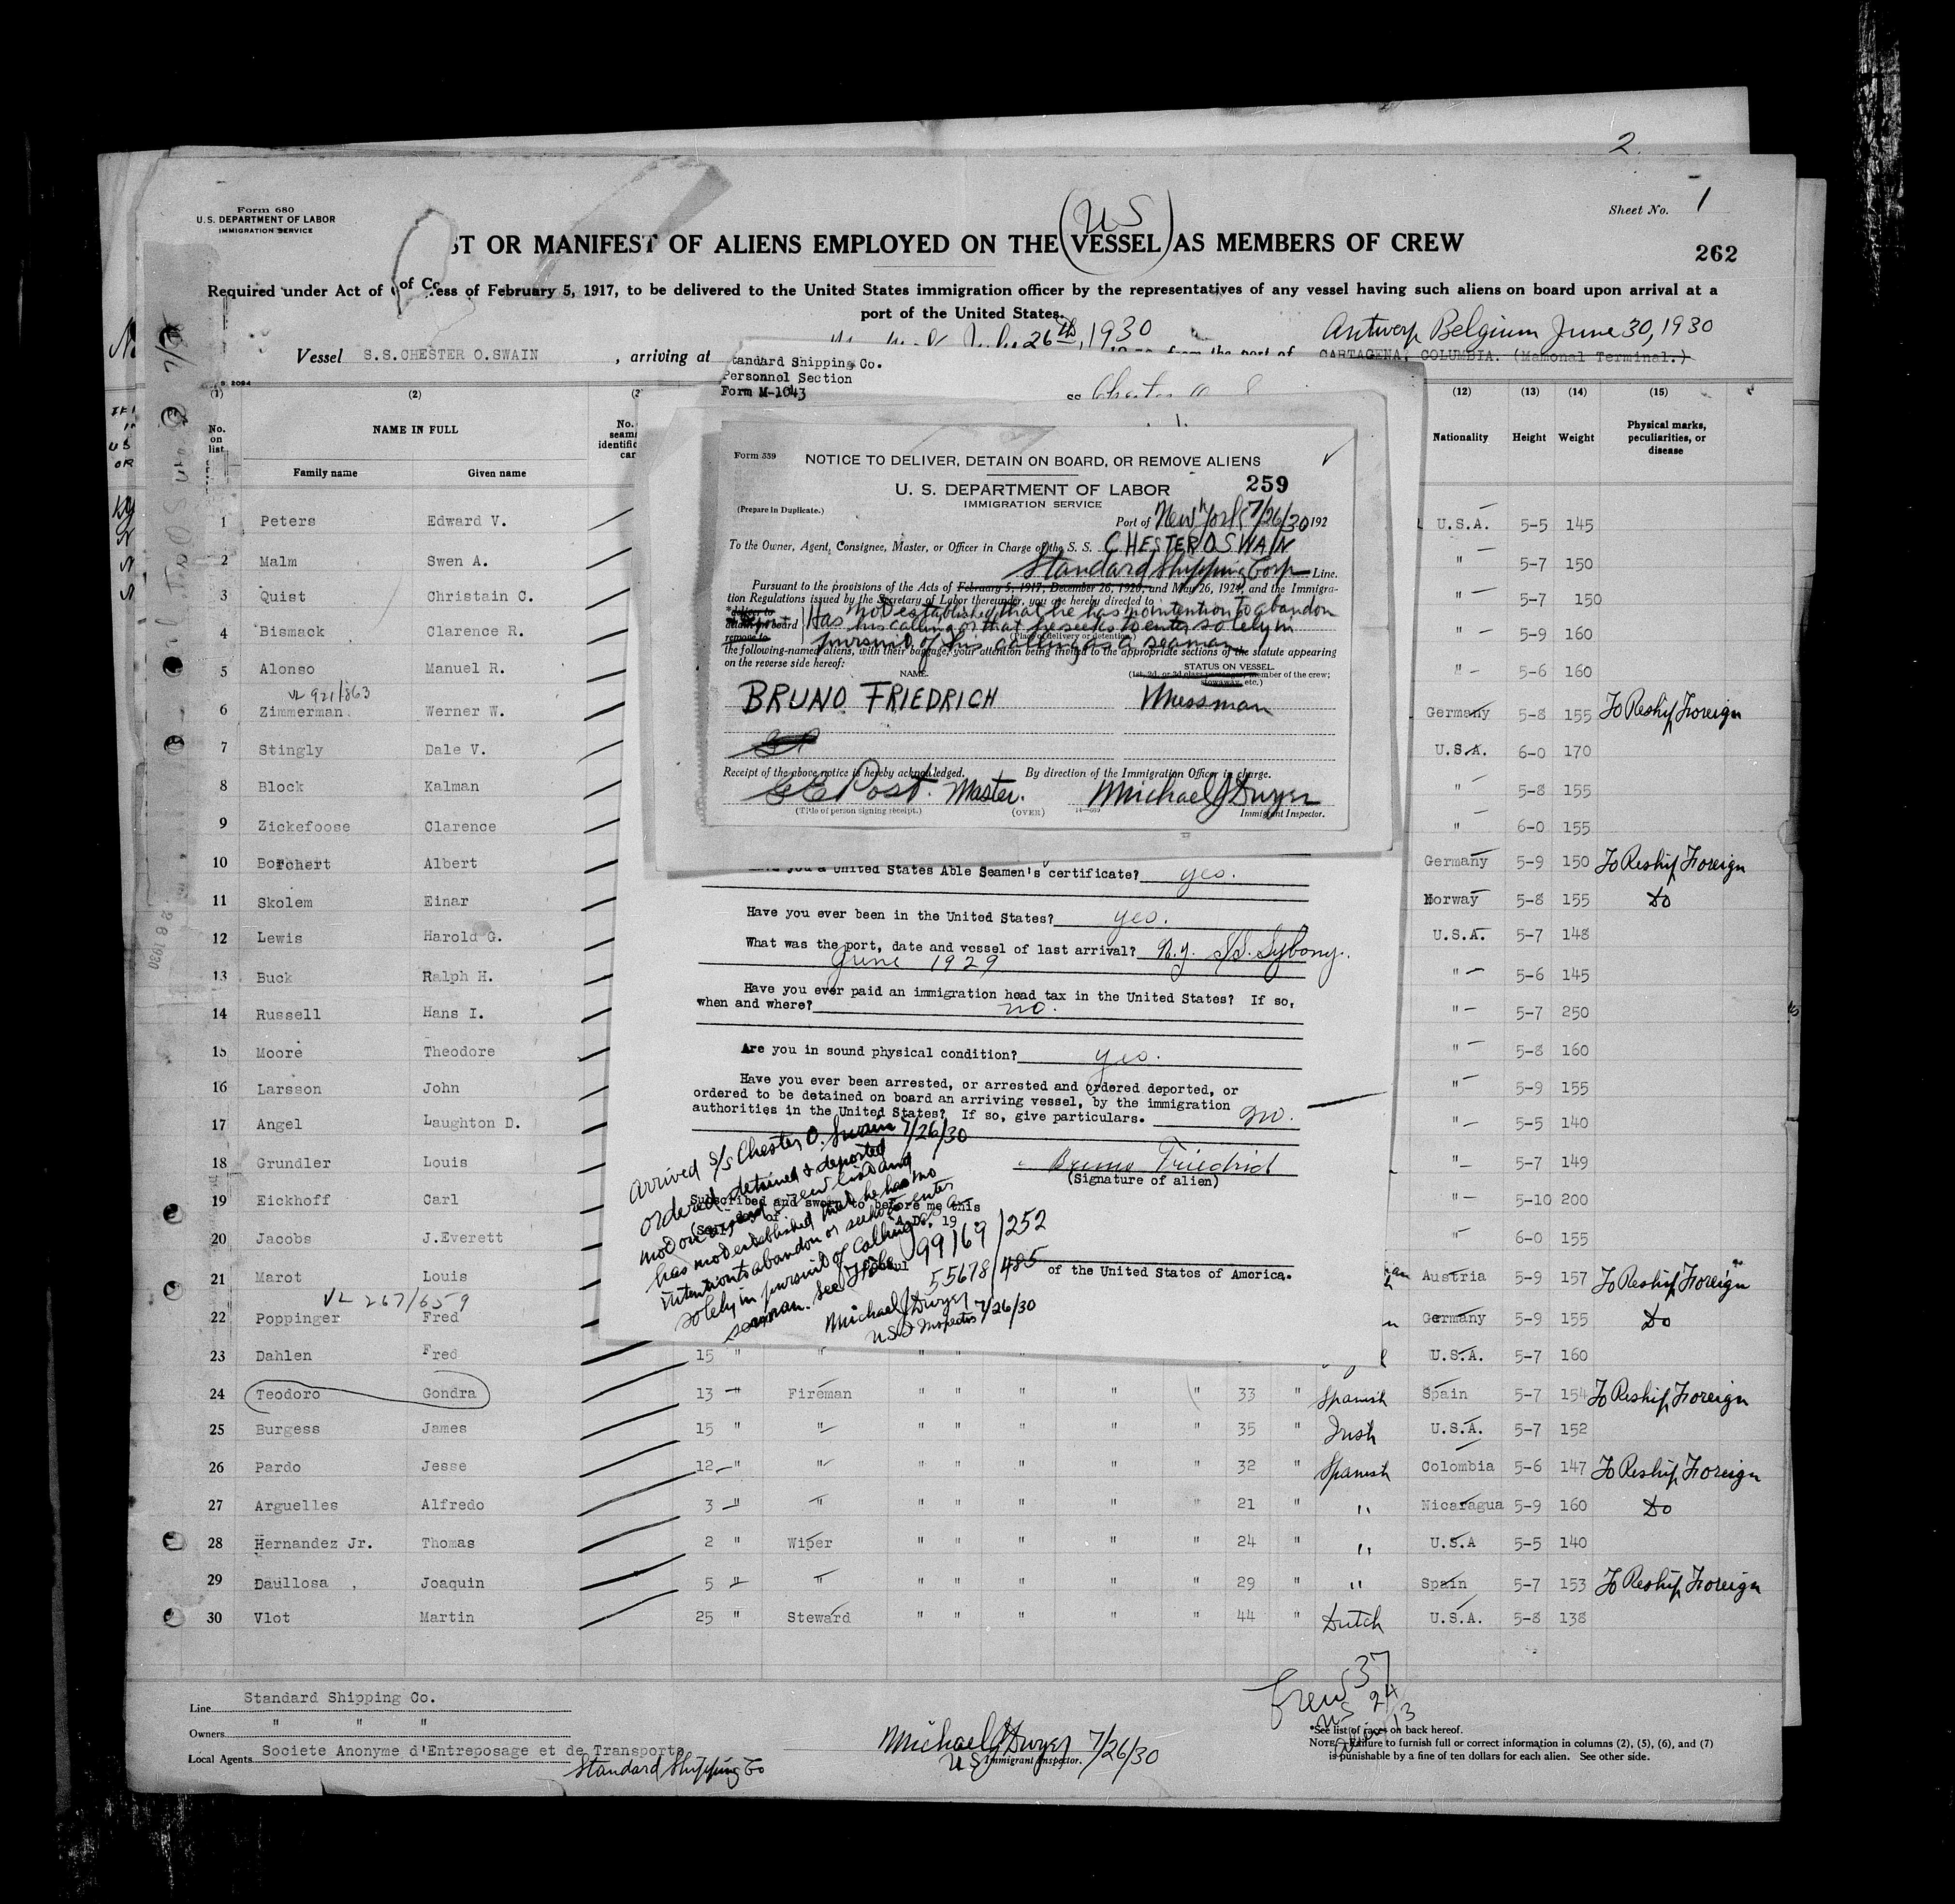 2
Form 680
U.S. DEPARTMENT OF LABOR
IMMIGRATION SERVICE
Sheet No. 1
US
ST OR MANIFEST OF ALIENS EMPLOYED ON THE (VESSEL) AS MEMBERS OF CREW
262
Required under Act of of Co ess of February 5, 1917, to be delivered to the United States immigration officer by the representatives of any vessel having such aliens on board upon arrival at a
port of the United States.
July 26th, 1930
Antwerp Belgium June 30, 1930
Vessel S.S. CHESTER O. SWAIN , arriving at from the port of CARTAGENA, COLUMBIA. (Mamonal Terminal.)
tandard Shipping Co.
Personnel Section
Form M-1043
SS Chester O S
(1) (2) (3 (12) (13) (14) (15)
No. on list NAME IN FULL Nationality Height Weight Physical marks, peculiarities, or disease
Family name Given name
Form 539
NOTICE TO DELIVER, DETAIN ON BOARD, OR REMOVE ALIENS
U. S. DEPARTMENT OF LABOR 259
IMMIGRATION SERVICE
(Prepare in Duplicate.)
Port of New York 7/26/30 192
To the Owner, Agent, Consignee, Master, or Officer in Charge of the S. S. CHESTER O SWAIN
Standard Shipping Corp Line.
Pursuant to the provisions of the Acts of February 5, 1917, December 26, 1920, and May 26, 1924, and the Immigra-
tion Regulations issued by the Secretary of Labor thereunder, you are hereby directed to
*deliver to
detain on board
remove to
Has not established that he has no intention to abandon
his calling or that he seeks to enter solely in
(Place of delivery or detention.)
pursuit of his calling as a seaman
the following-named aliens, with their baggage, your attention being invited to the appropriate sections of the statute appearing
on the reverse side hereof:
NAME. STATUS ON VESSEL.
(1st, 2d, or 3d class passenger, member of the crew; stowaway, etc.)
BRUNO FRIEDRICH Messman
Receipt of the above notice is hereby acknowledged. By direction of the Immigration Officer in charge.
G E Post. Master. Michael J Dwyer
(Title of person signing receipt.) (OVER) Immigrant Inspector.
you a United States Able Seamen's certificate? yes.
Have you ever been in the United States? yes.
What was the port, date and vessel of last arrival? N.Y. S/S. Sybony.
June 1929
Have you ever paid an immigration head tax in the United States? If so,
when and where? no.
Are you in sound physical condition? yes.
Have you ever been arrested, or arrested and ordered deported, or
ordered to be detained on board an arriving vessel, by the immigration
authorities in the United States? If so, give particulars. no.
Bruno Friedrich
(Signature of alien)
Subscribed and sworn to before me this
A. D. 19
of the United States of America.
Arrived S/S Chester O. Swain 7/26/30
ordered detained & deported
not on crew list and
has not established that he has no
intention to abandon or seeks to enter
solely in pursuit of calling
seaman. See
99169/252
55678/485
Michael J Dwyer
US Inspector 7/26/30
1 Peters Edward V. U.S.A. 5-5 145
2 Malm Swen A. " 5-7 150
3 Quist Christain C. " 5-7 150
4 Bismack Clarence R. " 5-9 160
5 Alonso Manuel R. " 5-6 160
VL 921/863
6 Zimmerman Werner W. Germany 5-8 155 To Reship Foreign
7 Stingly Dale V. U.S.A. 6-0 170
8 Block Kalman " 5-8 155
9 Zickefoose Clarence " 6-0 155
10 Borchert Albert Germany 5-9 150 To Reship Foreign
11 Skolem Einar Norway 5-8 155 Do
12 Lewis Harold G. U.S.A. 5-7 148
13 Buck Ralph H. " 5-6 145
14 Russell Hans I. " 5-7 250
15 Moore Theodore " 5-8 160
16 Larsson John " 5-9 155
17 Angel Laughton D. " 5-5 140
18 Grundler Louis " 5-7 149
19 Eickhoff Carl " 5-10 200
20 Jacobs J.Everett " 6-0 155
21 Marot Louis Austria 5-9 157 To Reship Foreign
VL 267/659
22 Poppinger Fred Germany 5-9 155 Do
23 Dahlen Fred 15 " " " " " " " U.S.A. 5-7 160
24 Teodoro Gondra 13 " Fireman " " " " " 33 " Spanish Spain 5-7 154 To Reship Foreign
25 Burgess James 15 " " " " " " " 35 " Irish U.S.A. 5-7 152
26 Pardo Jesse 12 " " " " " " " 32 " Spanish Colombia 5-6 147 To Reship Foreign
27 Arguelles Alfredo 3 " " " " " " " 21 " " Nicaragua 5-9 160 Do
28 Hernandez Jr. Thomas 2 " Wiper " " " " " 24 " " U.S.A 5-5 140
29 Daullosa , Joaquin 5 " " " " " " " 29 " " Spain 5-7 153 To Reship Foreign
30 Vlot Martin 25 " Steward " " " " " 44 " Dutch U.S.A. 5-8 138
Crew 37
US 24
13
Line Standard Shipping Co.
Owners " " "
Local Agents Societe Anonyme d'Entreposage et de Transports
Standard Shipping Co
Michael J Dwyer 7/26/30
US Immigrant Inspector.
*See list of races on back hereof.
NOTE.—Failure to furnish full or correct information in columns (2), (5), (6), and (7)
is punishable by a fine of ten dollars for each alien. See other side.